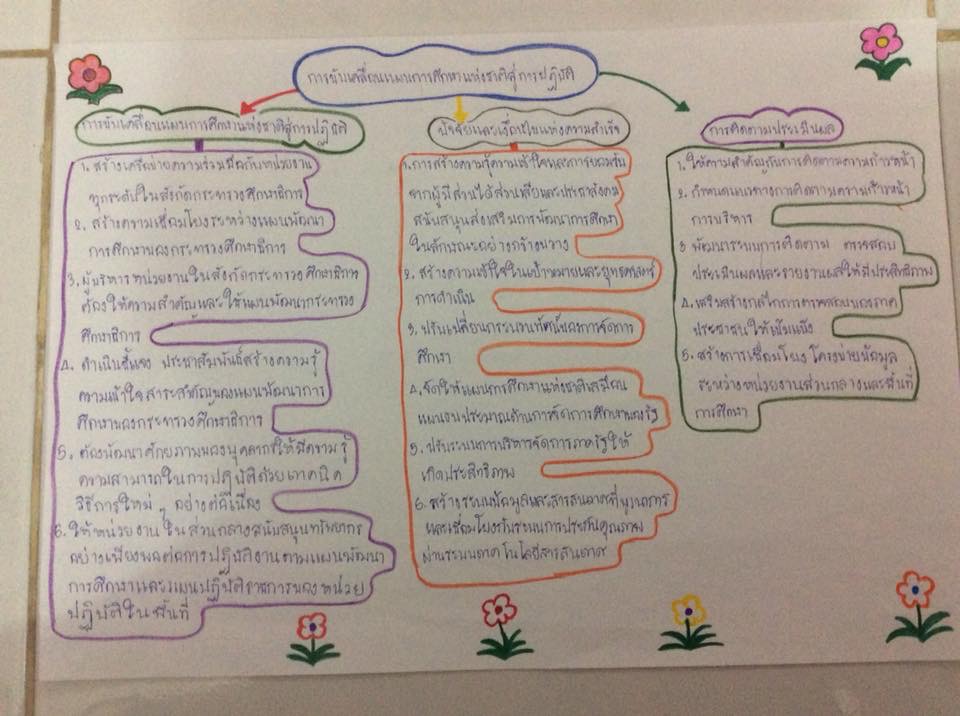 การขับเคลื่อนแผนการศึกษาแห่งชาติสู่การปฏิบัติ
การขับเคลื่อนแผนการศึกษาแห่งชาติสู่การปฏิบัติ
1. สร้างเครือข่ายความร่วมมือกับหน่วยงาน
ทุกระดับในสังกัดกระทรวงศึกษาธิการ
2. สร้างความเชื่อมโยงระหว่างแผนพัฒนา
การศึกษาของกระทรวงศึกษาธิการ
3. ผู้บริหารหน่วยงานในสังกัดกระทรวงศึกษาธิการ
ต้องให้ความสำคัญและใช้แผนพัฒนากระทรวง
ศึกษาธิการ
4. ดำเนินชี้แจง ประชาสัมพันธ์สร้างความรู้
ความเข้าใจสาระสำคัญของแผนพัฒนาการ
ศึกษาของกระทรวงศึกษาธิการ
5. ต้องพัฒนาศักยภาพของบุคลากรให้มีความรู้
ความสามารถในการปฏิบัติด้วยเทคนิค
วิธีการใหม่ๆ อย่างต่อเนื่อง
6. ให้หน่วยงานในส่วนกลางสนับสนุนทรัพยากร
อย่างเพียงพอต่อการปฏิบัติงานตามแผนพัฒนา
การศึกษาและแผนปฏิบัติราชการของหน่วย
ปฏิบัติในพื้นที่
ปัจจัยและเงื่อนไขแห่งความสำเร็จ
1. การสร้างความรู้ความเข้าใจและการยอมรับ
จากผู้มีส่วนได้ส่วนเสียและประชาสังคม
สนับสนุนส่งเสริมการพัฒนาการศึกษา
ในลักษณะอย่างกว้างขวาง
2. สร้างความเข้าใจในเป้าหมายและยุทธศาสตร์
การดำเนิน
3. ปรับเปลี่ยนกระบวนทัศน์ของการจัดการ
ศึกษา
4. จัดให้แผนการศึกษาแห่งชาติเสมือน
แผนงบประมาณด้านการจัดการศึกษาของรัฐ
5. ปรับระบบการบริหารจัดการภาครัฐให้
เกิดประสิทธิภาพ
6. สร้างระบบข้อมูลและสารสนเทศที่บูรณาการ
และเชื่อมโยงกับระบบการประกันคุณภาพ
ผ่านระบบเทคโนโลยีสารสนเทศ
การติดตามประเมินผล
1. ให้ความสำคัญกับการติดตามความก้าวหน้า
2. กำหนดแนวทางการติดตามความก้าวหน้า
การบริหาร
3 พัฒนาระบบการติดตาม ตรวจสอบ
ประเมินผลและรายงานผลให้มีประสิทธิภาพ
4. เสริมสร้างกลไกการตรวจสอบของภาค
ประชาชนให้เข้มแข็ง
5. สร้างการเชื่อมโยงโครงข่ายข้อมูล
ระหว่างหน่วยงานส่วนกลางและพื้นที่
การศึกษา